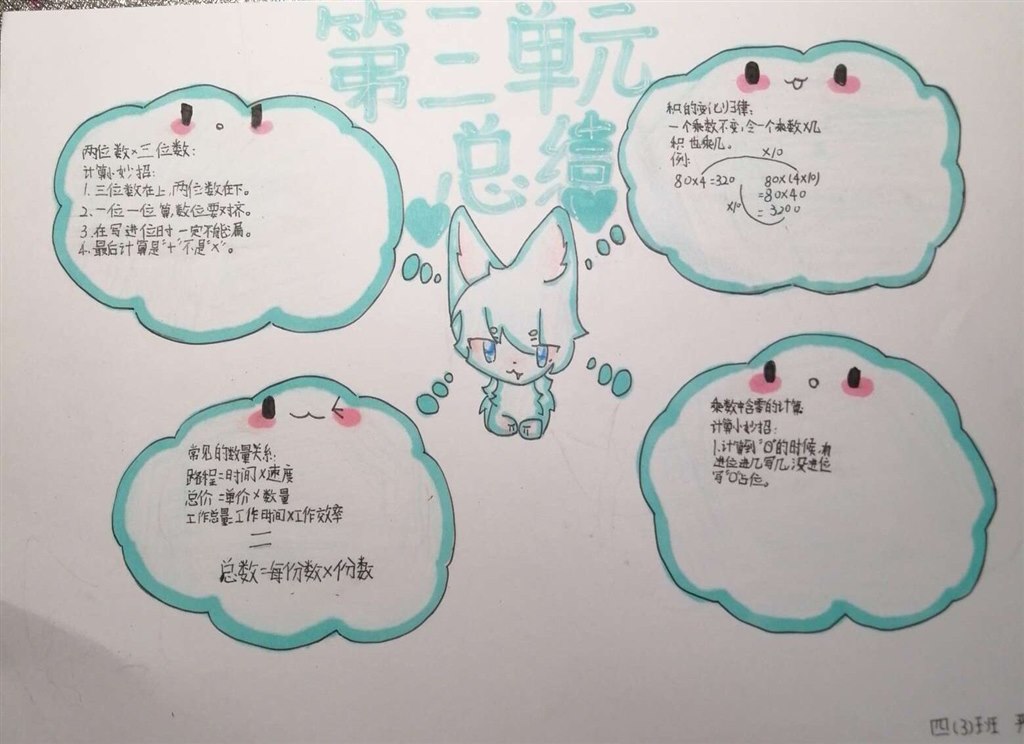 第三单元
总结
两位数×三位数:
计算小妙招:
1.三位数在上,两位数在下。
2.一位一位算,数位要对齐。
3.在写进位时一定不能漏。
4.最后计算是"+"不是"×"。
积的变化归律:
一个乘数不变,令一个乘数×几
积也乘几。
例:
×10
80×4=320
80×(4×10)
=80×40
×10
=3200
常见的数量关系:
路程=时间×速度
总价=单价×数量
工作总量=工作时间×工作效率
=
总数=每份数×份数
乘数中含零的计算
计算小妙招:
1.计算到"0"的时候,有
进位进几写几,没进位
写"0"占位。
四(3)班